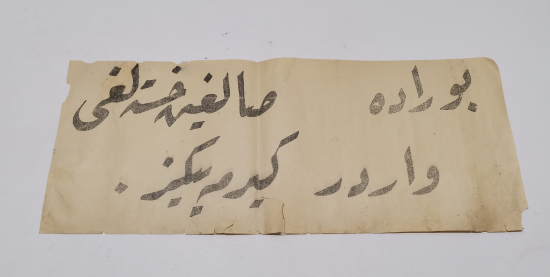 بوراده صالغین خسته‌لغی
واردر کیرمه‌یکیز .